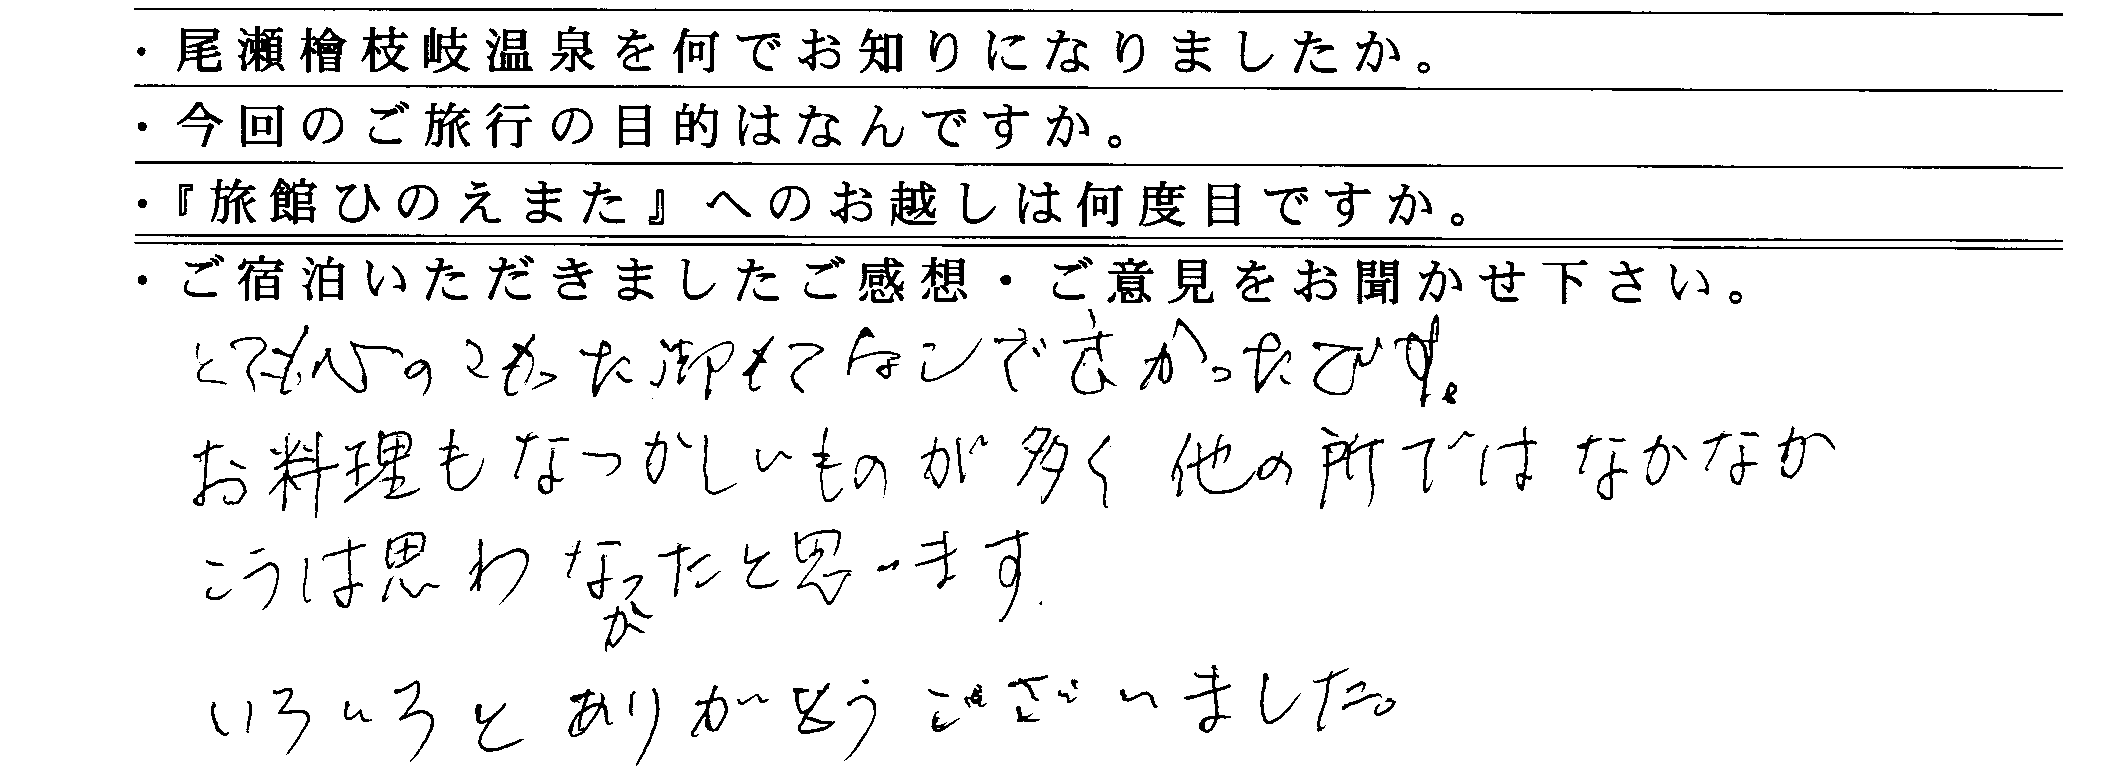 ・尾瀬檜枝岐温泉を何でお知りになりましたか。
・今回のご旅行の目的はなんですか。
・『旅館ひのえまた』へのお越しは何度目ですか。
・ご宿泊いただきましたご感想・ご意見をお聞かせ下さい。
とても心のこもった御もてなしで良かったです。
お料理もなつかしいものが多く他の所ではなかなか
こうは思わなかったと思います
いろいろとありがとうございました。